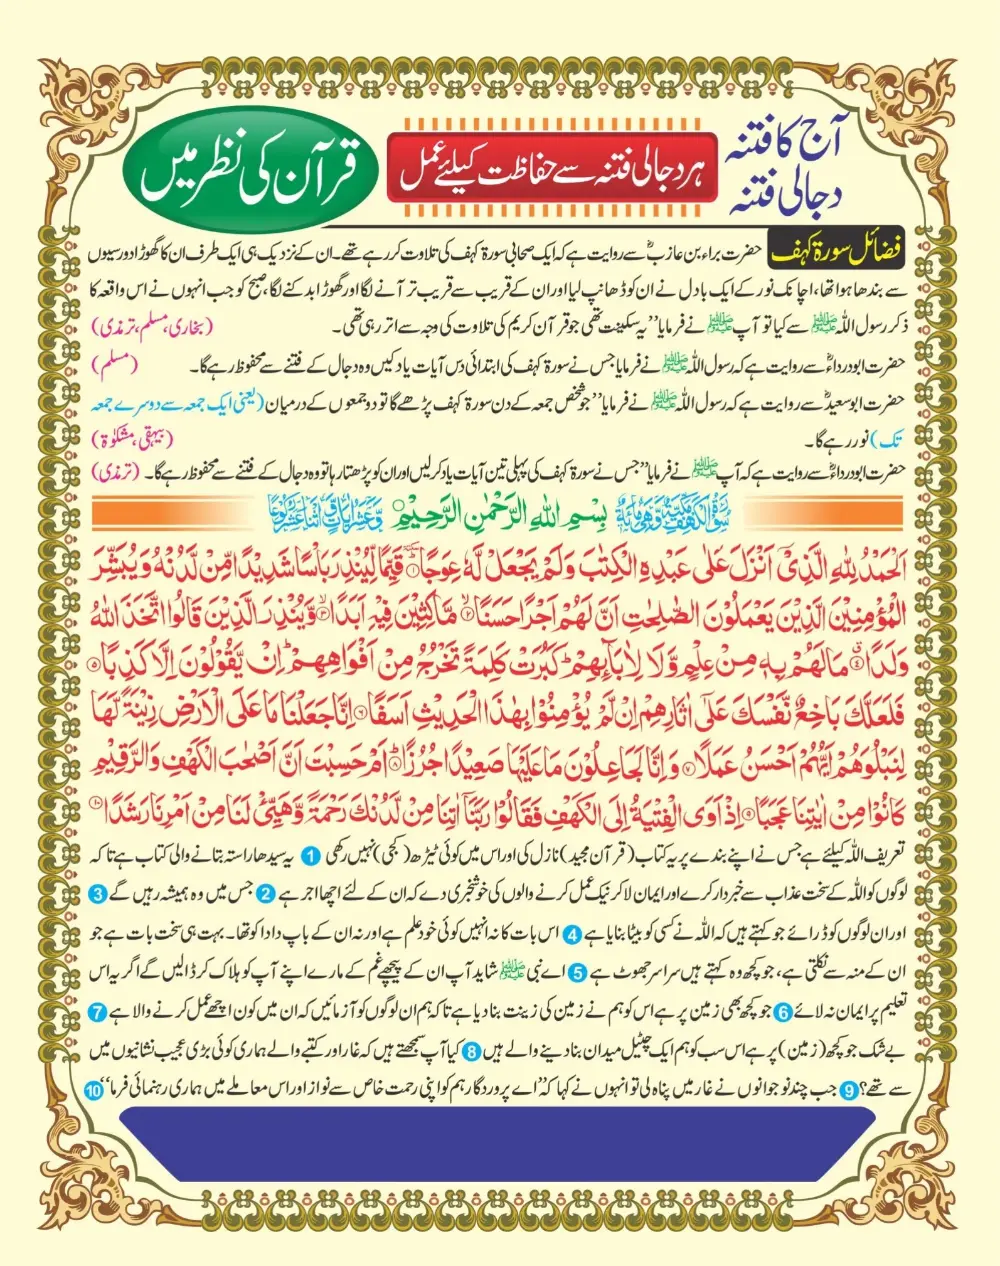 آج کا فتنہ
دجالی فتنہ
ہر دجالی فتنہ سے حفاظت کیلئے عمل
قرآن کی نظر میں
فضائل سورۃ کہف
حضرت براء بن عازبؓ سے روایت ہے کہ ایک صحابی سورۃ کہف کی تلاوت کر رہے تھے۔ ان کے نزدیک ہی ایک طرف ان کا گھوڑا دو رسیوں
سے بندھا ہوا تھا، اچانک نور کے ایک بادل نے ان کو ڈھانپ لیا اور ان کے قریب سے قریب تر آنے لگا اور گھوڑا بدکنے لگا، صبح کو جب انہوں نے اس واقعہ کا
ذکر رسول اللہ ﷺ سے کیا تو آپ ﷺ نے فرمایا ”یہ سکینت تھی جو قرآن کریم کی تلاوت کی وجہ سے اتر رہی تھی۔ (بخاری، مسلم، ترمذی)
حضرت ابودرداءؓ سے روایت ہے کہ رسول اللہ ﷺ نے فرمایا جس نے سورۃ کہف کی ابتدائی دس آیات یاد کیں وہ دجال کے فتنے سے محفوظ رہے گا۔ (مسلم)
حضرت ابوسعیدؓ سے روایت ہے کہ رسول اللہ ﷺ نے فرمایا ”جو شخص جمعہ کے دن سورۃ کہف پڑھے گا تو دو جمعوں کے درمیان (یعنی ایک جمعہ سے دوسرے جمعہ
تک) نور رہے گا۔ (بیہقی، مشکوٰۃ)
حضرت ابودرداءؓ سے روایت ہے کہ آپ ﷺ نے فرمایا ”جس نے سورۃ کہف کی پہلی تین آیات یاد کر لیں اور ان کو پڑھتا رہا تو وہ دجال کے فتنے سے محفوظ رہے گا۔ (ترمذی)
سُوْرَةُ الْكَهْفِ مَكِّيَّةٌ وَّهِيَ مِائَةٌ بِسْمِ اللهِ الرَّحْمٰنِ الرَّحِيْمِ وَّعَشْرُ اٰيَاتٍ وَّاثْنَا عَشَرَ رُكُوْعًا
اَلْحَمْدُ لِلّٰهِ الَّذِیْۤ اَنْزَلَ عَلٰى عَبْدِهِ الْكِتٰبَ وَلَمْ یَجْعَلْ لَّهٗ عِوَجًا ۱ قَیِّمًا لِّیُنْذِرَ بَاْسًا شَدِیْدًا مِّنْ لَّدُنْهُ وَیُبَشِّرَ
الْمُؤْمِنِیْنَ الَّذِیْنَ یَعْمَلُوْنَ الصّٰلِحٰتِ اَنَّ لَهُمْ اَجْرًا حَسَنًا ۲ مَّاكِثِیْنَ فِیْهِ اَبَدًا ۳ وَّیُنْذِرَ الَّذِیْنَ قَالُوا اتَّخَذَ اللّٰهُ
وَلَدًا ۴ مَا لَهُمْ بِهٖ مِنْ عِلْمٍ وَّلَا لِاٰبَآىِٕهِمْ كَبُرَتْ كَلِمَةً تَخْرُجُ مِنْ اَفْوَاهِهِمْ اِنْ یَّقُوْلُوْنَ اِلَّا كَذِبًا ۵
فَلَعَلَّكَ بَاخِعٌ نَّفْسَكَ عَلٰۤى اٰثَارِهِمْ اِنْ لَّمْ یُؤْمِنُوْا بِهٰذَا الْحَدِیْثِ اَسَفًا ۶ اِنَّا جَعَلْنَا مَا عَلَى الْاَرْضِ زِیْنَةً لَّهَا
لِنَبْلُوَهُمْ اَیُّهُمْ اَحْسَنُ عَمَلًا ۷ وَاِنَّا لَجَاعِلُوْنَ مَا عَلَیْهَا صَعِیْدًا جُرُزًا ۸ اَمْ حَسِبْتَ اَنَّ اَصْحٰبَ الْكَهْفِ وَالرَّقِیْمِ
كَانُوْا مِنْ اٰیٰتِنَا عَجَبًا ۹ اِذْ اَوَى الْفِتْیَةُ اِلَى الْكَهْفِ فَقَالُوْا رَبَّنَاۤ اٰتِنَا مِنْ لَّدُنْكَ رَحْمَةً وَّهَیِّئْ لَنَا مِنْ اَمْرِنَا رَشَدًا ۱۰
تعریف اللہ کیلئے ہے جس نے اپنے بندے پر یہ کتاب (قرآن مجید) نازل کی اور اس میں کوئی ٹیڑھ (کجی) نہیں رکھی 1 یہ سیدھا راستہ بتانے والی کتاب ہے تا کہ
لوگوں کو اللہ کے سخت عذاب سے خبردار کرے اور ایمان لا کر نیک عمل کرنے والوں کی خوشخبری دے کہ ان کے لئے اچھا اجر ہے 2 جس میں وہ ہمیشہ رہیں گے 3
اور ان لوگوں کو ڈرائے جو کہتے ہیں کہ اللہ نے کسی کو بیٹا بنایا ہے 4 اس بات کا نہ انہیں کوئی خود علم ہے اور نہ ان کے باپ دادا کو تھا۔ بہت ہی سخت بات ہے جو
ان کے منہ سے نکلتی ہے، جو کچھ وہ کہتے ہیں سراسر جھوٹ ہے 5 اے نبی ﷺ شاید آپ ان کے پیچھے غم کے مارے اپنے آپ کو ہلاک کر ڈالیں گے اگر یہ اس
تعلیم پر ایمان نہ لائے 6 جو کچھ بھی زمین پر ہے اس کو ہم نے زمین کی زینت بنا دیا ہے تا کہ ہم ان لوگوں کو آزمائیں کہ ان میں کون اچھے عمل کرنے والا ہے 7
بے شک جو کچھ (زمین) پر ہے اس سب کو ہم ایک چٹیل میدان بنا دینے والے ہیں 8 کیا آپ سمجھتے ہیں کہ غار اور کتبے والے ہماری کوئی بڑی عجیب نشانیوں میں
سے تھے؟ 9 جب چند نوجوانوں نے غار میں پناہ لی تو انہوں نے کہا کہ ”اے پروردگار ہم کو اپنی رحمت خاص سے نواز اور اس معاملے میں ہماری رہنمائی فرما“ 10